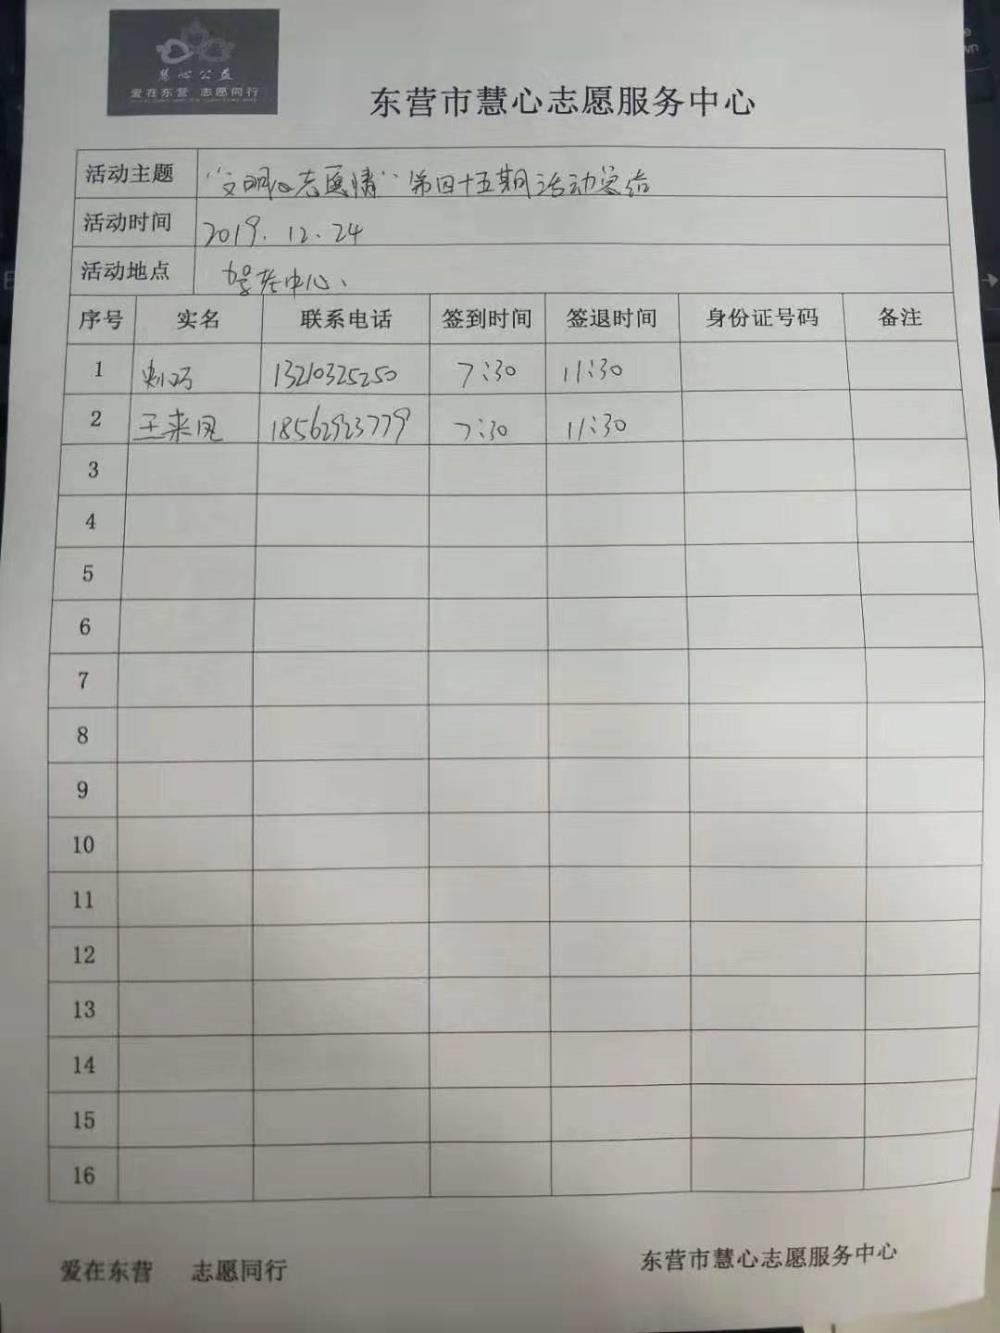 慧心公益
爱在东营 志愿同行
东营市慧心志愿服务中心
活动主题 “文明心志愿情”第四十五期活动总结
活动时间 2019.12.24
活动地点 中心、
序号 实名 联系电话 签到时间 签退时间 身份证号码 备注
1 13210325250 7:30 11:30
2 王来凤 18562923779 7:30 11:30
3
4
5
6
7
8
9
10
11
12
13
14
15
16
爱在东营 志愿同行 东营市慧心志愿服务中心